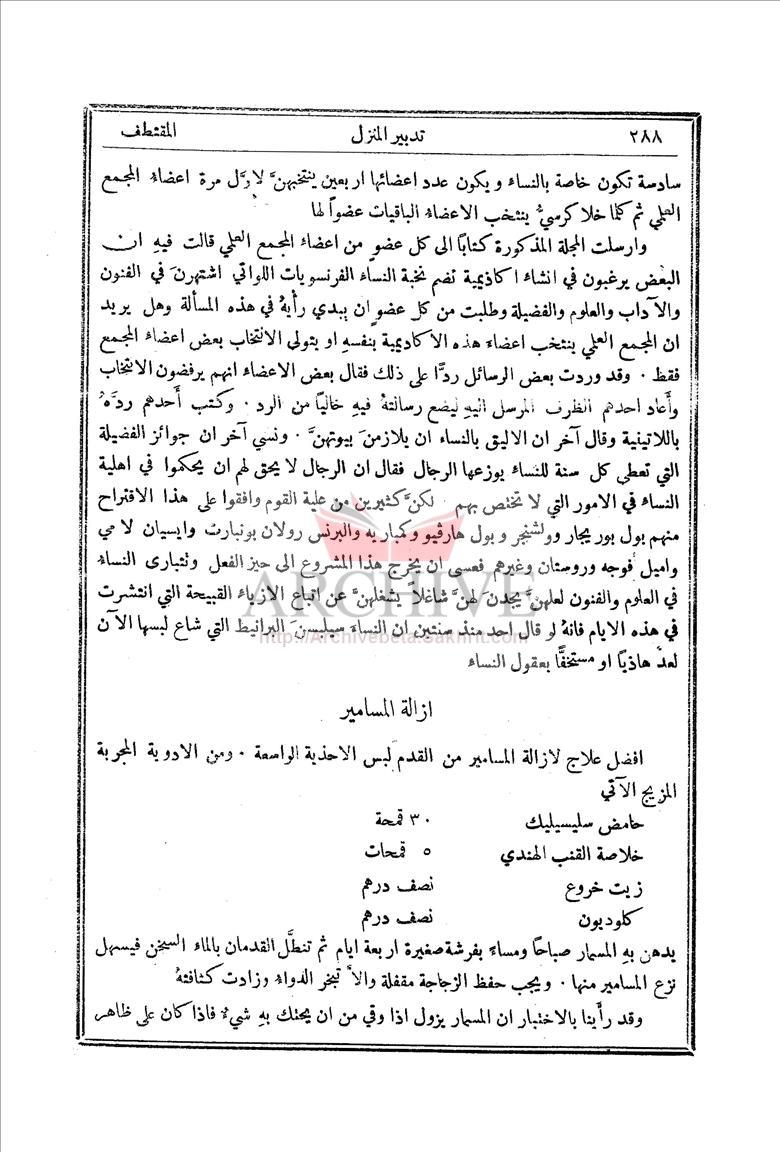 ٢٨٨ تدبير المنزل المقتطف
سادسة تكون خاصة بالنساء ويكون عدد اعضائها اربعين ينتخبهنَّ لاوَّل مرة اعضاء المجمع
العلمي ثم كلما خلا كرسيٌّ ينتخب الاعضاء الباقيات عضواً لها
وارسلت المجلة المذكورة كتاباً الى كل عضوٍ من اعضاء المجمع العلمي قالت فيهِ ان
البعض يرغبون في انشاء اكاذيمية تضم نخبة النساء الفرنسويات اللواتي اشتهرنَ في الفنون
والآداب والعلوم والفضيلة وطلبت من كل عضوٍ ان يبدي رأيهُ في هذه المسألة وهل يريد
ان المجمع العلمي ينتخب اعضاء هذه الاكاديمية بنفسهِ او يتولى الانتخاب بعض اعضاء المجمع
فقط . وقد وردت بعض الرسائل ردًّا على ذلك فقال بعض الاعضاء انهم يرفضون الانتخاب
وأعاد احدهم الظرف المرسل اليهِ ليضع رسالتهُ فيهِ خالياً من الرد . وكتب أحدهم ردَّهُ
باللاتينية وقال آخر ان الاليق بالنساء ان يلازمنَ بيوتهنَّ . ونسي آخر ان جوائز الفضيلة
التي تعطى كل سنة للنساء يوزعها الرجال فقال ان الرجال لا يحق لهم ان يحكموا في اهلية
النساء في الامور التي لا تختص بهم . لكنَّ كثيرين من علية القوم وافقوا على هذا الاقتراح
منهم بول بوريجار وولشنجر وبول هارڤيو وكمباريه والبرنس رولان بونبارت وايسيان لامي
واميل فوجه وروستان وغيرهم فعسى ان يخرج هذا المشروع الى حيز الفعل وتتبارى النساء
ARCHIVE
في العلوم والفنون لعلهنَّ يجدنَ لهنَّ شاغلاً يشغلهنَّ عن اتباع الازياء القبيحة التي انتشرت
في هذه الايام فانهُ لو قال احد منذ سنتين ان النساء سيلبسنَ البرانيط التي شاع لبسها الآن
http://Archivebeta.Sakhrit.com
لعدَّ هاذياً او مستخفًّا بعقول النساء
ازالة المسامير
افضل علاج لازالة المسامير من القدم لبس الاحذية الواسعة . ومن الادوية المجربة
المزيج الآتي
حامض سليسيليك ٣٠ قمحة
خلاصة القنب الهندي ٥ قمحات
زيت خروع نصف درهم
كلوديون نصف درهم
يدهن بهِ المسمار صباحاً ومساءً بفرشة صغيرة اربعة ايام ثم تنطَّل القدمان بالماء السخن فيسهل
نزع المسامير منها . ويجب حفظ الزجاجة مقفلة والاَّ تبخر الدواء وزادت كثافتهُ
وقد رأينا بالاختبار ان المسمار يزول اذا وقي من ان يحتك بهِ شيءٌ فاذا كان على ظاهر